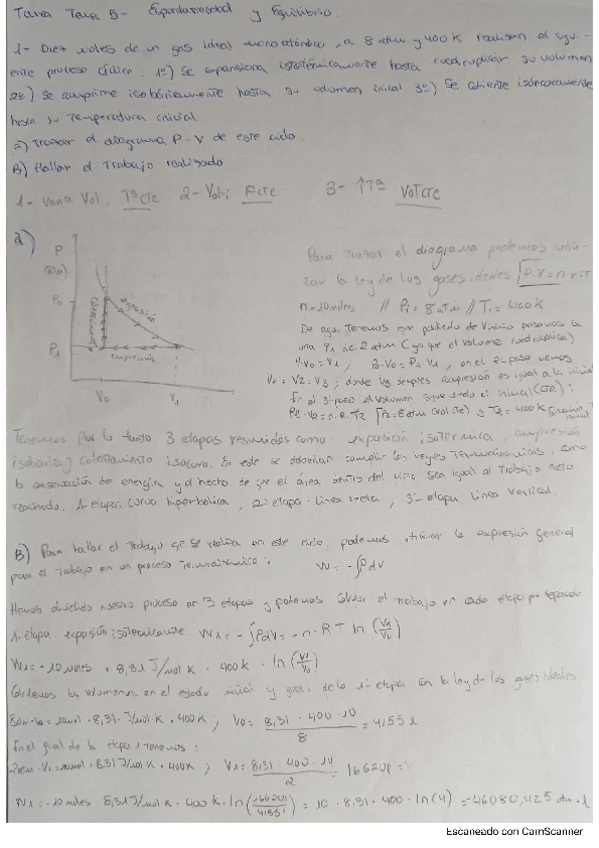 Tarea Tema 5- Espontaneidad y Equilibrio.
1- Diez moles de un gas ideal monoatómico, a 8 atm y 400 K realizan el sigu-
iente proceso cíclico: 1º) Se expansiona isotérmicamente hasta cuadruplicar su volumen
2º) Se comprime isobáricamente hasta su volumen inicial 3º) Se calienta isócoramente
hasta su Temperatura inicial
a) Trazar el diagrama P-V de este ciclo.
B) Hallar el Trabajo realizado
1- Varia Vol, Tª cte 2- Vol↓; Pcte 3- ↑Tª Vol cte
a)
P
(atm)
P0
P1
Calentamiento
expansión
compresión
V0 V1
Para trazar el diagrama podemos utili-
zar la ley de los gases ideales P·V=n·r·T
n=10moles // Pi=8atm // Ti=400K
una P1 de 2atm (ya que el volumen cuadruplica)
V0=V2=V3; donde la compresión es igual a la inicial
En el 3º paso el volumen sigue siendo el inicial (cte):
P2·V2=n·R·T2
Tenemos por lo tanto 3 etapas resumidas como: expansión isotérmica, compresión
isobárica y calentamiento isócoro. En este se deberían cumplir las leyes Termodinámicas, como
la conservación de energía y el hecho de que el área dentro del ciclo sea igual al trabajo neto
realizado. 1-etapa: curva hiperbólica, 2-etapa: línea recta; 3-etapa: línea vertical.
B) Para hallar el Trabajo que se realiza en este ciclo, podemos utilizar la expresión general
para el trabajo en un proceso termodinámico: W=-∫Pdv
Hemos dividido nuestro proceso en 3 etapas y podemos calcular el trabajo en cada etapa por separado
1-etapa: expansión isotérmicamente. W1=-∫PdV=-n·R·T ln(V1/V0)
W1=-10moles · 8,31 J/mol K · 400K · ln(V1/V0)
los volúmenes en el estado inicial y final de la 1-etapa con la ley de los gases ideales
8atm·V0=10mol·8,31·J/mol·K·400K; V0=8,31·400·10/8=4155 l
En el final de la etapa 1 tenemos:
2atm·V1=10mol·8,31J/mol·K·400K; V1=8,31·400·10/2=16620 l
W1=-10moles 8,31J/mol·K·400K·ln(16620/4155)=10·8,31·400·ln(4)=-46080,425 atm·l
Escaneado con CamScanner